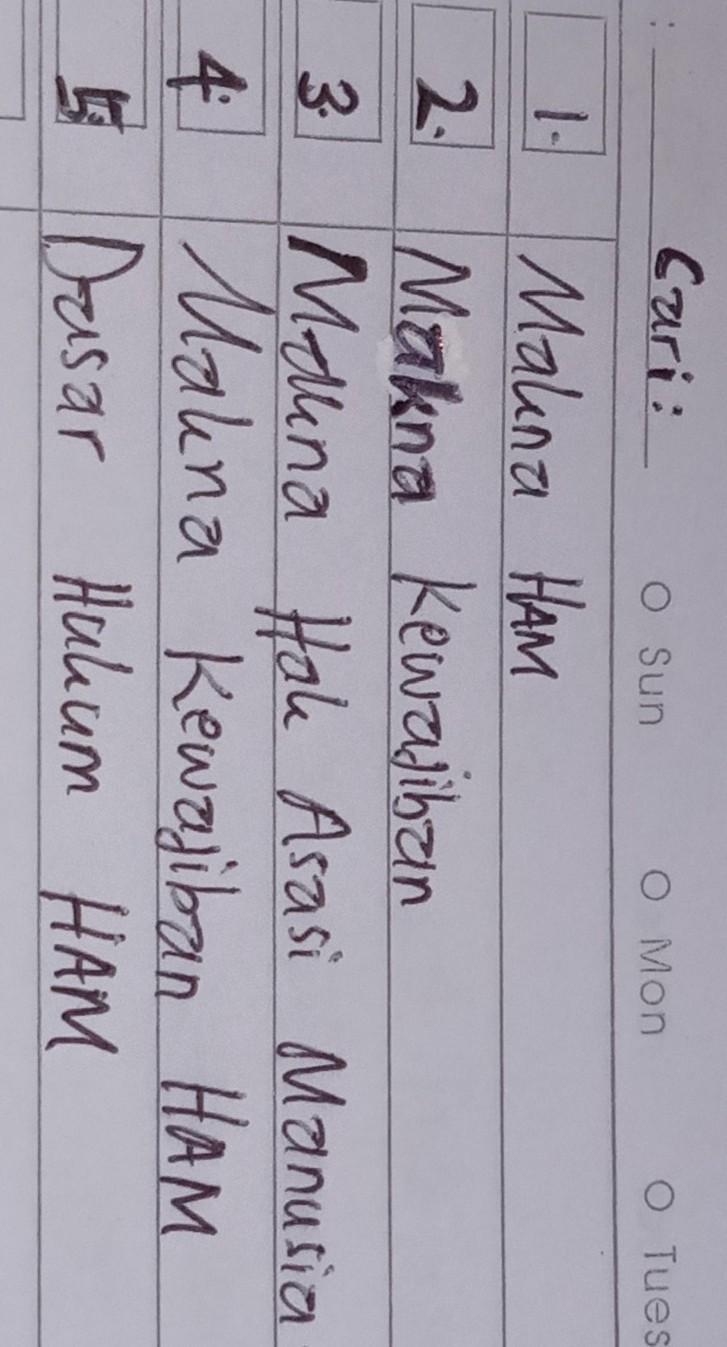 Cari:
Sun Mon Tues
1. Makna HAM
2. Makna Kewajiban
3. Makna Hak Asasi Manusia
4. Makna Kewajiban HAM
5. Dasar Hukum HAM